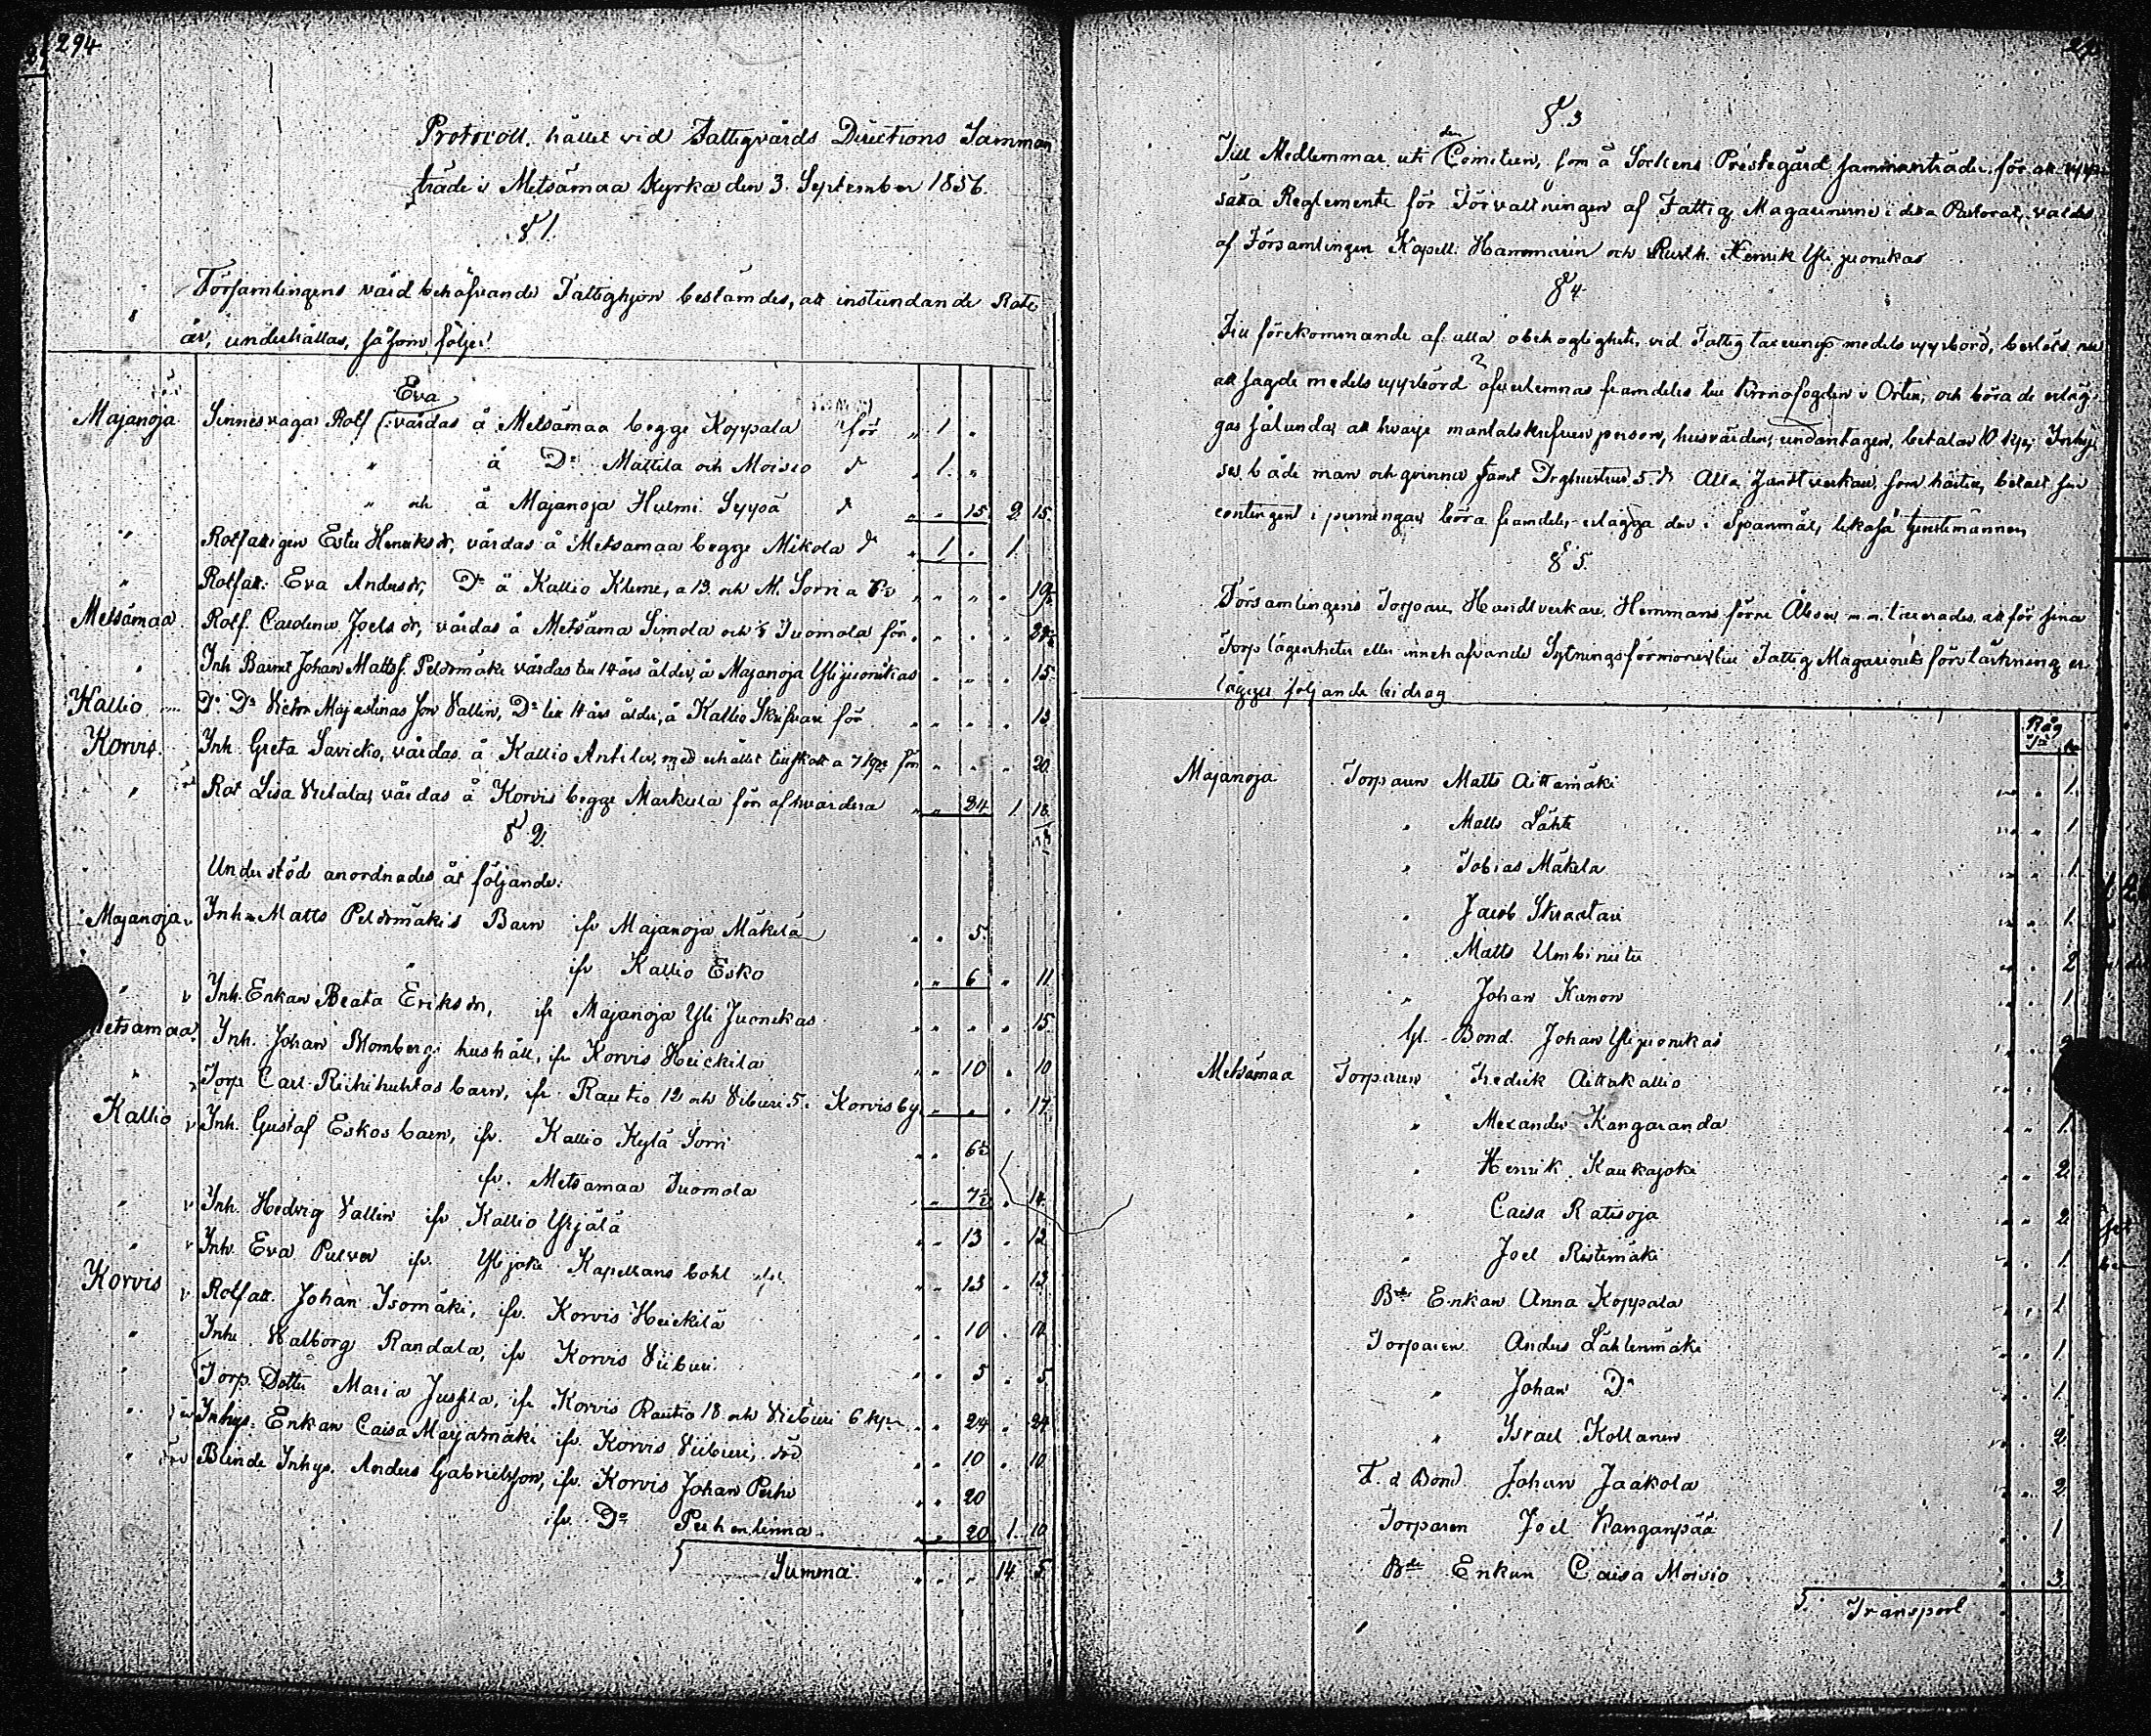 294
Protocoll, hållet vid Fattigvårds Directions Samman
träde i Metsämaa Kyrka den 3. September 1856.
§ 1.
Församlingens vård behöfvande Fattighjon bestämdes, att instundande Rote
år, underhållas, såsom följer:
Majanoja Sinnesvaga Rotf Eva vårdas å Metsämaa begge Koppala för " 1 "
" å Do Mattila och Moisio d " 1 "
" och å Majanoja Hulmi Syppä d " " 15 2 15
" Rotfattigen Ester Henriksdr, vårdas å Metsämaa begge Mikola d " 1 " 1
" Rotfatt: Eva Andersdr, Do å Kallio Klemi, a 13. och M. Sorri a
Metsämaa Rotf. Carolina Joelsdr, vårdas å Metsämaa Simola och Tuomola för
" Inh Barnet Johan Matts f. Peldomäki vårdas till 14 års ålder, å Majanoja Ylijuonikas 15
Kallio Do Do Victor Majastinas son Vallin, Do till 14 års ålder, å Kallio Skrifvari för 13
Korvis. Inh. Greta Savicko, vårdas å Kallio Anttila, med erhållet tillskott a 7 kpr för 20.
" Rot Lisa Vietala, vårdas å Korvis begge Markula för afhvardera " " 24 1 18
§ 2.
Understöd anordnades åt följande:
Majanoja Inh Matts Peldomäkis Barn ifr Majanoja Mäkelä " " 5
ifr Kallio Esko " " 6 " 11
" Inh. Enkan Beata Eriksdr, ifr Majanoja Yli Juonikas " " " " 15
Metsämaa. Inh. Johan Blombergs hushåll, ifr Korvis Heickilä " " 10 " 10
" Torp Carl Riihihuhtas barn, ifr Rautio 12 och Viburi 5 i Korvis by " " " " 17
Kallio Inh. Gustaf Eskos barn, ifr. Kallio Kylä Sorri " " 6½
ifr. Metsämaa Tuomola " " 7½ " 14
" Inh. Hedvig Vallin ifr Kallio Yrjälä " " 13 " 13
" Inh. Eva Pulver ifr. Ylijoki Kapellans bohl " " 13 " 13
Korvis Rotfatt. Johan Isomäki, ifr. Korvis Heickilä " " 10 " 10
" Inh. Walborg Randala, ifr Korvis Viiburi " " 5 " 5
" Torp. Dotter Maria Jussila, ifr Korvis Rautio 18 och Viiburi 6 kpr " " 24 " 24
" Inhys: Enkan Caisa Marjamäki ifr. Korvis Viiburi, " " 10 " 10
" Blinde Inhys. Anders Gabrielsson, ifr. Korvis Johan Perho " " 20
ifr. Do Perhenlinna " " 20 1 10
Summa " " " 14 5
§ 3
Till Medlemmar uti den Comiteen, som å Sockens Prestegård sammanträder för att upp
sätta Reglemente för Förvaltningen af Fattig Magasinerne i detta Pastorat, valdes
af Församlingen Kapell. Hammarin och Rusth. Henrik Ylijuonikas
§ 4.
Till förekommande af alla obehagligheter, vid Fattig taxerings medels uppbörd, beslöts nu
att sagde medels uppbörd öfverlemnas framdeles till Kronofogden i Orten, och böra de erläg
gas sålunda, att hvarje mantalsskrifven person, husvärden, undantagen, betalar 10 kpr; Inhy
ses både man och qvinna samt 5 d Alla handtverkare, som härtills, betalt sin
contingent i penningar, böra framdeles erlägga den i Spanmål, likaså tjenstemännen
§ 5.
Församlingens Torpare, Handtverkare, Hemmans förre Åboer m.m. taxerades, att för sina
Torp lägenheter eller innehafvande Sytningsförmoner till Fattig Magasinets förstärkning er
lägga följande bidrag
Råg
Majanoja Torparen Matts Aittamäki 1.
" Matts Lähti 1
" Tobias Mäkelä 1
" Jacob Skraatari 1.
" Matts Umbiniitu 2
" Johan Kunow 1.
Gl. Bond. Johan Ylijuonikas
Metsämaa Torparen Fredrik Aittakallio
" Alexander Kangaranda 1.
" Henrik Kaukajoki 2
" Caisa Ratisoja 2
" Joel Ristimäki 1.
Bde Enkan Anna Koppala 1
Torparen Anders Lähtenmäki 1.
" Johan Do 1.
" Israel Kollanen 2
F. d Bond Johan Jaakola 2
Torparen Joel Kanganpää 1
Bde Enkan Caisa Moisio 3
Transport